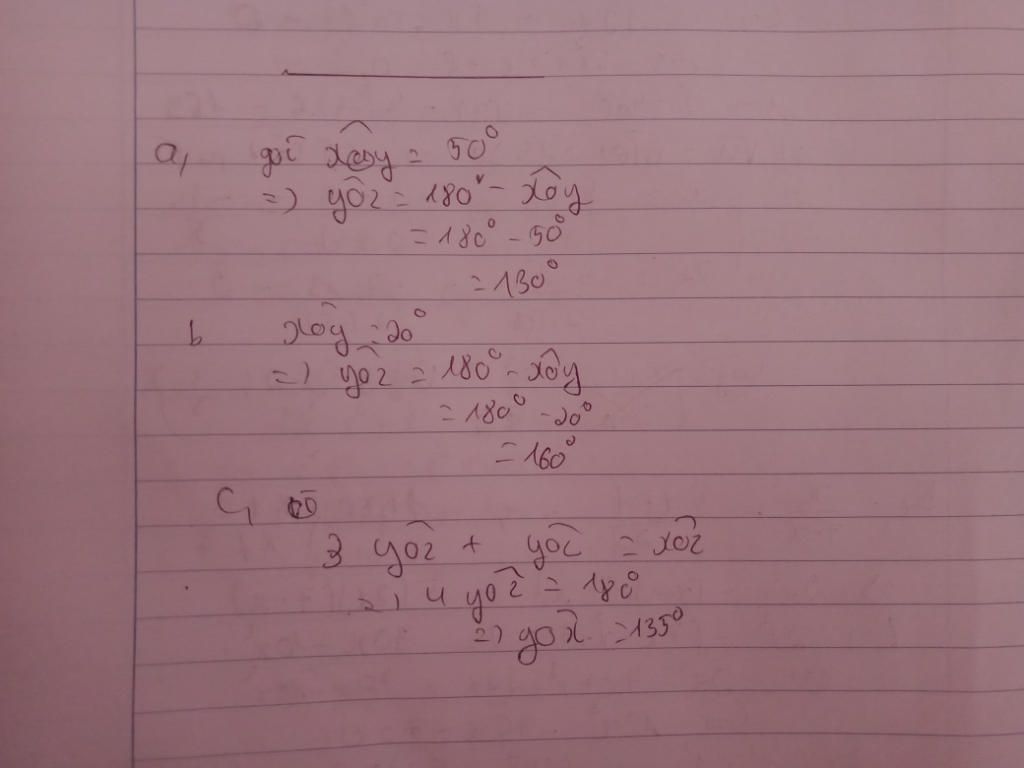 a, với x̂oy = 50°
=> ŷoz = 180° - x̂oy
= 180° - 50°
= 130°
b x̂oy = 20°
=> ŷoz = 180° - x̂oy
= 180° - 20°
= 160°
C, có
3 ŷoz + ŷoz = x̂oz
=> 4 ŷoz = 180°
=> ŷox = 135°